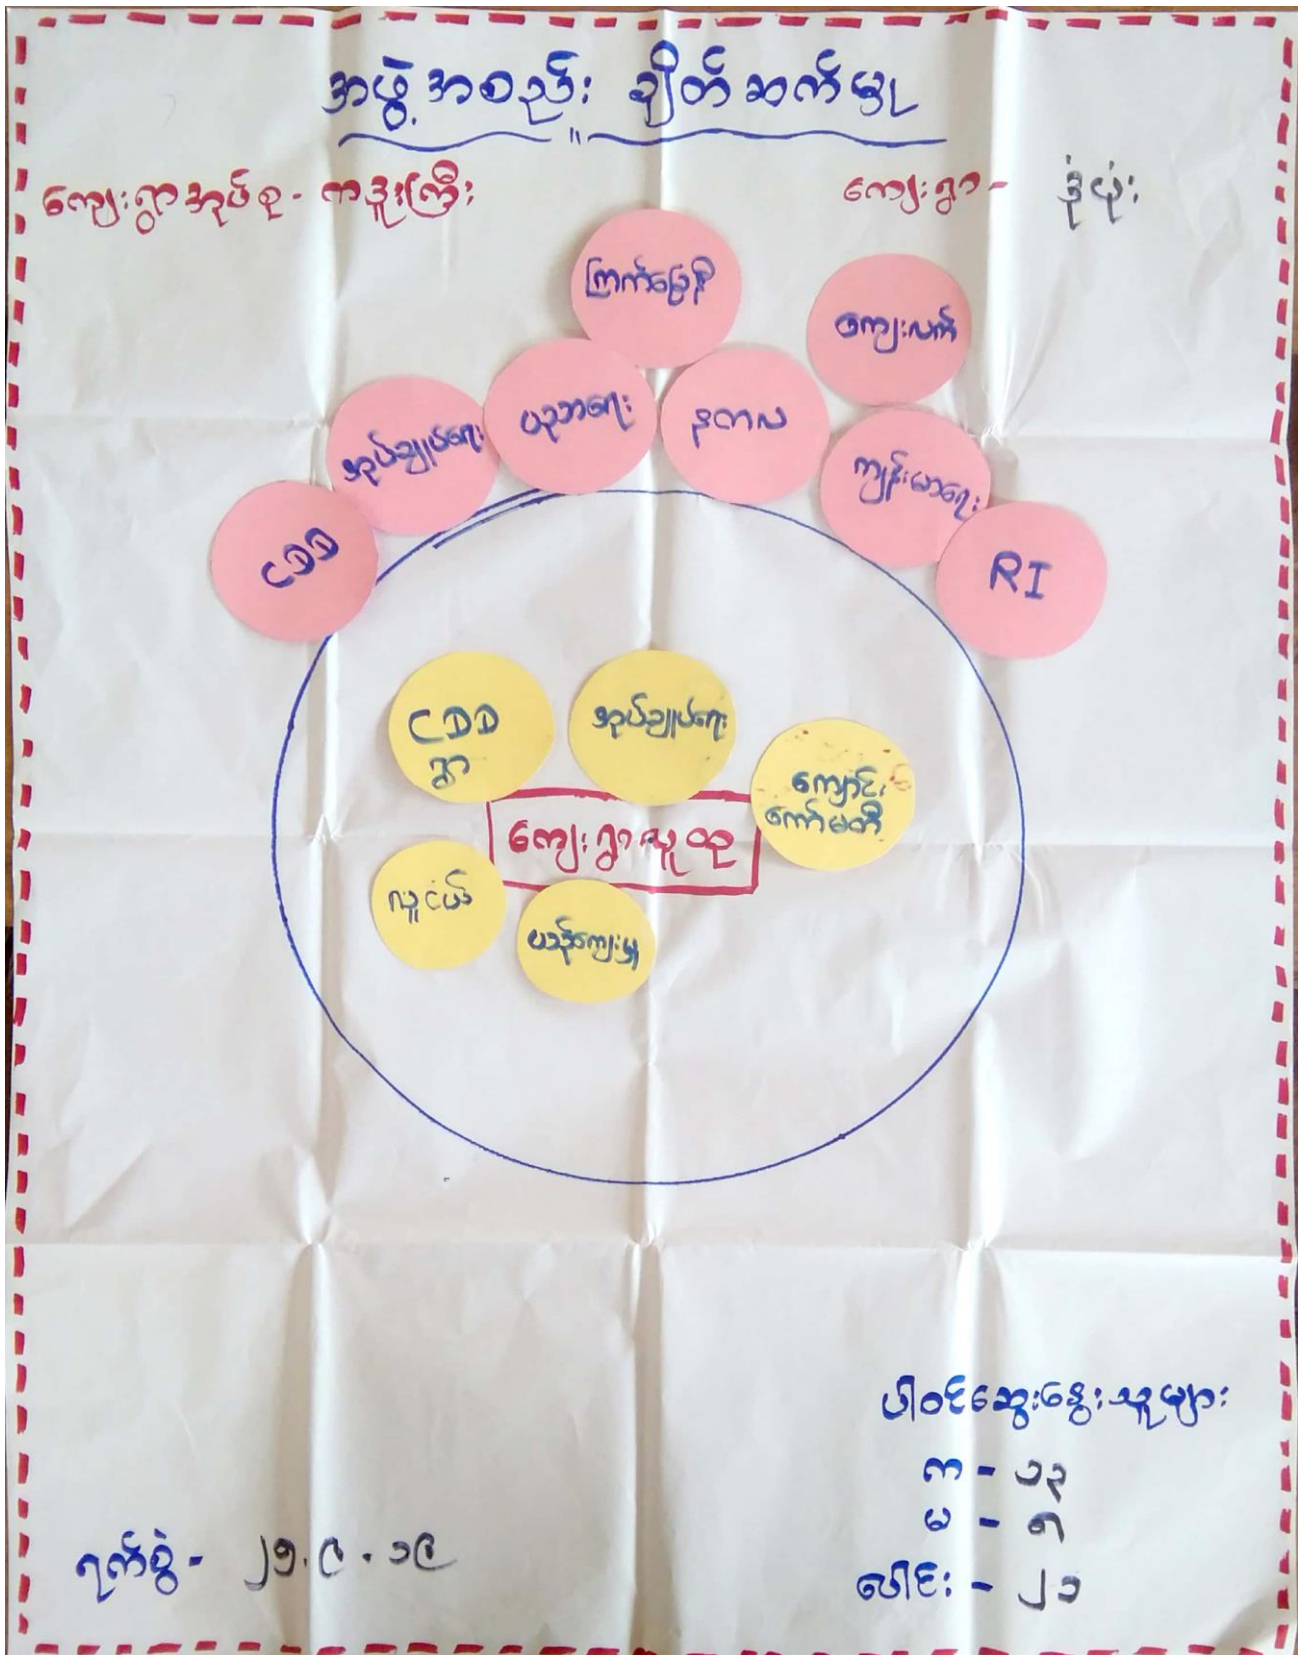 အဖွဲ့အစည်း ချိတ်ဆက်မှု
ကျေးရွာအုပ်စု - ကဒူးကြီး
ကျေးရွာ - ဒုံယုံး
ကြက်ခြေနီ
ကျေးလက်
ပညာရေး
နကလ
အုပ်ချုပ်ရေး
ကျန်းမာရေး
CDD
RI
CDD
ရွာ
အုပ်ချုပ်ရေး
ကျောင်း
ကော်မတီ
ကျေးရွာလူထု
လူငယ်
ယဉ်ကျေးမှု
ပါဝင်ဆွေးနွေးသူများ
က - ၁၃
မ - ၈
ပေါင်း - ၂၁
ရက်စွဲ - ၂၅.၉.၁၉